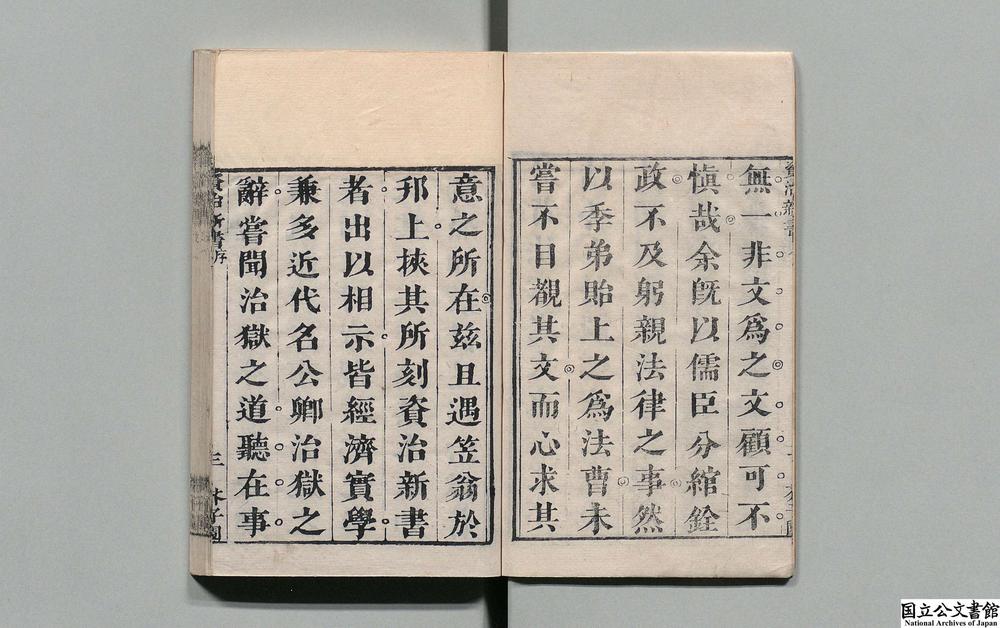 無一非文爲之文顧可不
愼哉余旣以儒臣分綰銓
政不及躬親法律之事然
以季弟貽上之爲法曹未
嘗不目覩其文而心求其
意之所在茲且遇笠翁於
邗上挾其所刻資治新書
者出以相示皆經濟實學
兼多近代名公卿治獄之
辭嘗聞治獄之道聽在事
資治新書序
三
国立公文書館
National Archives of Japan